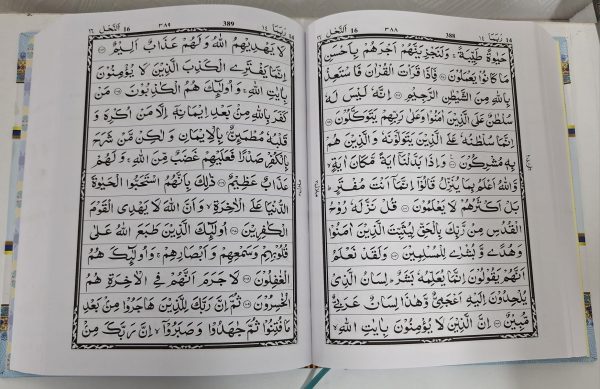 ١٤ رُبَمَا ١٤ 388 ٣٨٨ اَلنَّحْل ١٦ 16
حَيٰوةً طَيِّبَةً ۚ وَلَنَجْزِيَنَّهُمْ اَجْرَهُمْ بِاَحْسَنِ
مَا كَانُوْا يَعْمَلُوْنَ ۞ فَاِذَا قَرَاْتَ الْقُرْاٰنَ فَاسْتَعِذْ
بِاللّٰهِ مِنَ الشَّيْطٰنِ الرَّجِيْمِ ۞ اِنَّهٗ لَيْسَ لَهٗ
سُلْطٰنٌ عَلَى الَّذِيْنَ اٰمَنُوْا وَعَلٰى رَبِّهِمْ يَتَوَكَّلُوْنَ ۞
اِنَّمَا سُلْطٰنُهٗ عَلَى الَّذِيْنَ يَتَوَلَّوْنَهٗ وَالَّذِيْنَ هُمْ
بِهٖ مُشْرِكُوْنَ ۞ وَاِذَا بَدَّلْنَاۤ اٰيَةً مَّكَانَ اٰيَةٍ ۙ
وَّاللّٰهُ اَعْلَمُ بِمَا يُنَزِّلُ قَالُوْۤا اِنَّمَاۤ اَنْتَ مُفْتَرٍ ؕ
بَلْ اَكْثَرُهُمْ لَا يَعْلَمُوْنَ ۞ قُلْ نَزَّلَهٗ رُوْحُ
الْقُدُسِ مِنْ رَّبِّكَ بِالْحَقِّ لِيُثَبِّتَ الَّذِيْنَ اٰمَنُوْا
وَهُدًى وَّبُشْرٰى لِلْمُسْلِمِيْنَ ۞ وَلَقَدْ نَعْلَمُ
اَنَّهُمْ يَقُوْلُوْنَ اِنَّمَا يُعَلِّمُهٗ بَشَرٌ ؕ لِسَانُ الَّذِيْ
يُلْحِدُوْنَ اِلَيْهِ اَعْجَمِيٌّ وَّهٰذَا لِسَانٌ عَرَبِيٌّ
مُّبِيْنٌ ۞ اِنَّ الَّذِيْنَ لَا يُؤْمِنُوْنَ بِاٰيٰتِ اللّٰهِ ۙ
رُبَمَا ١٤ ٣٨٩ 389 اَلنَّحْل ١٦ 16
لَا يَهْدِيْهِمُ اللّٰهُ وَلَهُمْ عَذَابٌ اَلِيْمٌ ۞
اِنَّمَا يَفْتَرِى الْكَذِبَ الَّذِيْنَ لَا يُؤْمِنُوْنَ
بِاٰيٰتِ اللّٰهِ ۚ وَاُولٰٓئِكَ هُمُ الْكٰذِبُوْنَ ۞ مَنْ
كَفَرَ بِاللّٰهِ مِنْۢ بَعْدِ اِيْمَانِهٖۤ اِلَّا مَنْ اُكْرِهَ وَ
قَلْبُهٗ مُطْمَئِنٌّۢ بِالْاِيْمَانِ وَلٰكِنْ مَّنْ شَرَحَ
بِالْكُفْرِ صَدْرًا فَعَلَيْهِمْ غَضَبٌ مِّنَ اللّٰهِ ۚ وَلَهُمْ
عَذَابٌ عَظِيْمٌ ۞ ذٰلِكَ بِاَنَّهُمُ اسْتَحَبُّوا الْحَيٰوةَ
الدُّنْيَا عَلَى الْاٰخِرَةِ ۙ وَاَنَّ اللّٰهَ لَا يَهْدِى الْقَوْمَ
الْكٰفِرِيْنَ ۞ اُولٰٓئِكَ الَّذِيْنَ طَبَعَ اللّٰهُ عَلٰى
قُلُوْبِهِمْ وَسَمْعِهِمْ وَاَبْصَارِهِمْ ۚ وَاُولٰٓئِكَ هُمُ
الْغٰفِلُوْنَ ۞ لَا جَرَمَ اَنَّهُمْ فِى الْاٰخِرَةِ هُمُ
الْخٰسِرُوْنَ ۞ ثُمَّ اِنَّ رَبَّكَ لِلَّذِيْنَ هَاجَرُوْا مِنْۢ بَعْدِ
مَا فُتِنُوْا ثُمَّ جٰهَدُوْا وَصَبَرُوْۤا ۙ اِنَّ رَبَّكَ مِنْۢ